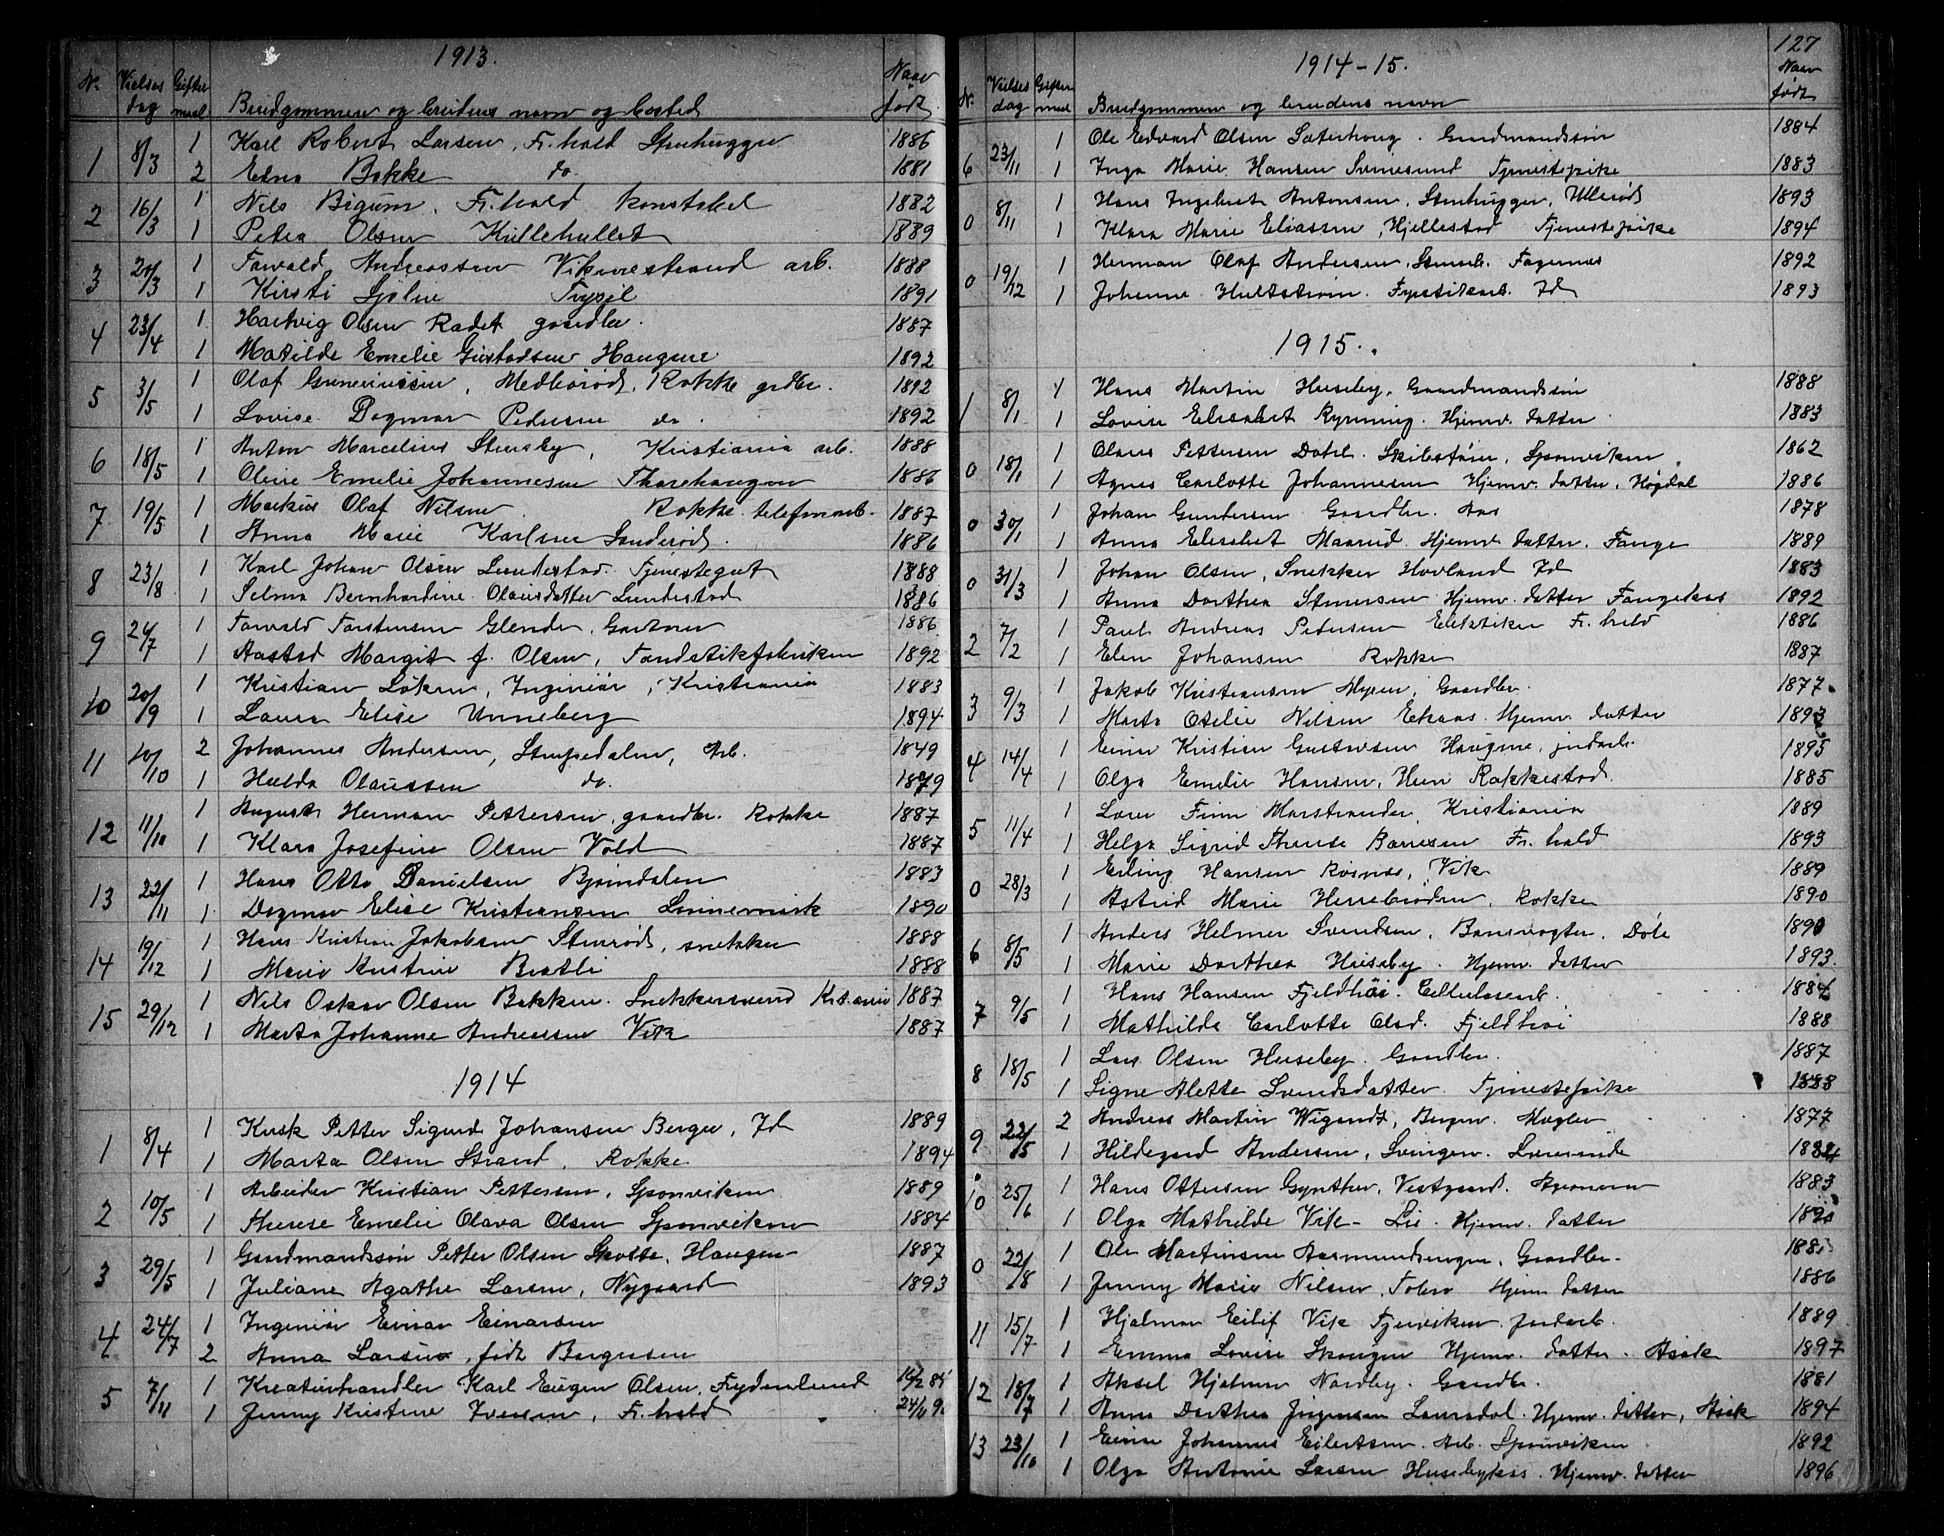 1913.
Nr. Vielses dag Gifter maal Brudgommens og brudens navn og bosted Naar født
1 8/3 1 Karl Robert Larsen, Fr.hald Stenhugger 1886
2 Edna Bakke do. 1881
2 16/3 1 Nils Bigum, Fr.hald Konstabel 1882
1 Petra Olsen Kullehullet 1889
3 24/3 1 Torvald Andreassen Viksnestrand arb. 1888
1 Kirsti Sjølie Trysil 1891
4 23/4 1 Hartvig Olsen Rødet gaardbr. 1887
1 Matilde Emelie Gustadsen Haugene 1892
5 3/5 1 Olaf Gunneriussen, Medbørød, Rokke grdbr. 1892
1 Lovise Dagmar Pedersen do. 1892
6 18/5 1 Anton Marcelius Stensby, Kristiania arb. 1888
1 Oline Emelie Johannesen Tharehaugen 1886
7 19/5 1 Markus Olaf Nilsen Rokke. telefonarb. 1887
1 Anna Marie Karlsen Sanderød. 1886
8 23/8 1 Karl Johan Olsen Lundestad. Tjenestegut 1888
1 Selma Bernhardine Olausdatter Lundestad 1886
9 24/7 1 Torvald Torstensen Glende, Gartner 1886
1 Aasted Margit f. Olsen, Tændstikfabriken 1892
10 20/9 1 Kristian Løken, Ingeniør, Kristiania 1883
1 Laura Elise Unneberg 1894
11 10/10 2 Johannes Andersen, Stumpedalen, Arb. 1849
1 Hulda Olaussen do. 1879
12 11/10 1 August Herman Pettersen, gaardbr. Rokke 1887
1 Klara Josefine Olsen Vold 1887
13 22/11 1 Hans Otto Danielsen Bjørndalen 1883
1 Dagmar Elise Kristiansen Linnemark 1890
14 19/12 1 Hans Kristian Jakobsen Stenrød, snekker 1888
1 Marie Kristine Bratli 1888
15 29/12 1 Nils Oskar Olsen Bakken. Snekkersvend Kr.ania 1887
1 Marta Johanne Andreasen Vik 1887
1914
1 8/4 1 Kusk Petter Sigurd Johansen Berger, Id 1889
1 Marta Olsen Strand, Rokke 1894
2 10/5 1 Arbeider Kristian Pettersen, Sponviken 1889
1 Therese Emelie Olava Olsen Sponviken 1884
3 29/5 1 Gaardmandssøn Petter Olsen Skotte, Haugen 1887
1 Juliane Agathe Larsen, Nygaard 1893
4 24/7 1 Ingeniør Einar Einarsen
2 Anna Larsen, født Børgesen
5 7/11 1 Kreaturhandler Karl Eugen Olsen, Frydenlund
1 Jenny Kristine Iversen, Fr.hald
127
1914-15.
Nr. Vielses dag Gifter maal Brudgommens og brudens navn Naar født
6 23/11 1 Ole Edvard Olsen Sæterhaug. Gaardmandssøn 1884
1 Inga Marie Hansen Svinesund Tjenestepike 1883
0 8/11 1 Hans Ingebret Antonsen, Stenhugger, Ullerød 1893
1 Klara Marie Eliassen, Hjellestad Tjenestepike 1894
0 19/12 1 Herman Olaf Andersen, Stenarb. Fagernes 1892
1 Johanne Hultstrøm. Fyrstikarb. Id 1893
1915.
1 8/1 1 Hans Martin Huseby, Gaardmandssøn 1888
1 Lovise Elisabet Ryrning. Hjemv. datter 1883
0 18/1 1 Olaus Pettersen Dahl. Skibstøm., Sponviken 1862
1 Agnes Carlotte Johannesen Hjemv. datter, Høgdal 1886
0 30/1 1 Johan Gundersen Gaardbr. Aas 1878
1 Anna Elisabet Maarud. Hjemv. datter. Fange 1889
0 31/3 1 Johan Olsen, Snekker Hovland Id 1883
1 Anna Dorthea Stenersen Hjemv. datter Fangekas 1892
2 7/2 1 Paul Andreas Pedersen Elektriker Fr.hald 1886
1 Elen Johansen Rokke 1887
3 9/3 1 Jakob Kristiansen Mysen, Gaardbr. 1877
1 Marta Otelie Nilsen Ekaas. Hjemv. datter 1893
4 14/4 1 Einar Kristian Gustavsen Haugene, jordarb. 1895
1 Olga Emelie Hansen, Hun Rakkestad. 1885
5 11/4 1 Lorn Finn Marstrander, Kristiania 1889
1 Helga Sigrid Therese Borresen Fr.hald 1893
0 28/3 1 Erling Hansen Rosnæs, Vik 1889
1 Astrid Marie Herrebrøden, Rokke 1890
6 8/5 1 Anders Helmer Svendsen, Banevogter. Døle 1890
1 Marie Dorthea Huseby. Hjemv. datter 1893.
7 9/5 1 Hans Hansen Fjeldhøi. Cellulosearb. 1884
1 Mathilde Carlotte Olsd. Fjeldhøi 1888
8 18/5 1 Lars Olsen Huseby. Gaardbr. 1887
1 Signe Alette Svendsdatter. Tjenestepike 1888
9 22/5 2 Andreas Martin Wigandt, Bergen. Mægler 1877
1 Hildegard Andersen, Svingen. Lærerinde
10 25/6 1 Hans Ottersen Gynther, Vestgaard. Agronom 1883
1 Olga Mathilde Vik - Lie. Hjemv. datter
0 22/8 1 Ole Martinsen Aasmundsengen, Gaardbr.
1 Jenny Marie Nilsen, Torbo Hjemv. datter 1886
11 15/7 1 Hjalmar Eilif Vik Tjerviken. Jordarb. 1889
1 Emma Lovise Skaugen Hjemv. datter. Asak 1897
12 18/7 1 Aksel Hjalmar Nordby. Gaardbr. 1881
1 Anna Dorthea Jørgensen Lauvsdal. Hjemv. datter, Asak 1894
13 23/10 1 Einar Johannes Eilertsen. Arb. Sponviken 1892
1 Olga Antonie Larsen Husebykas. Hjemv. datter 1896